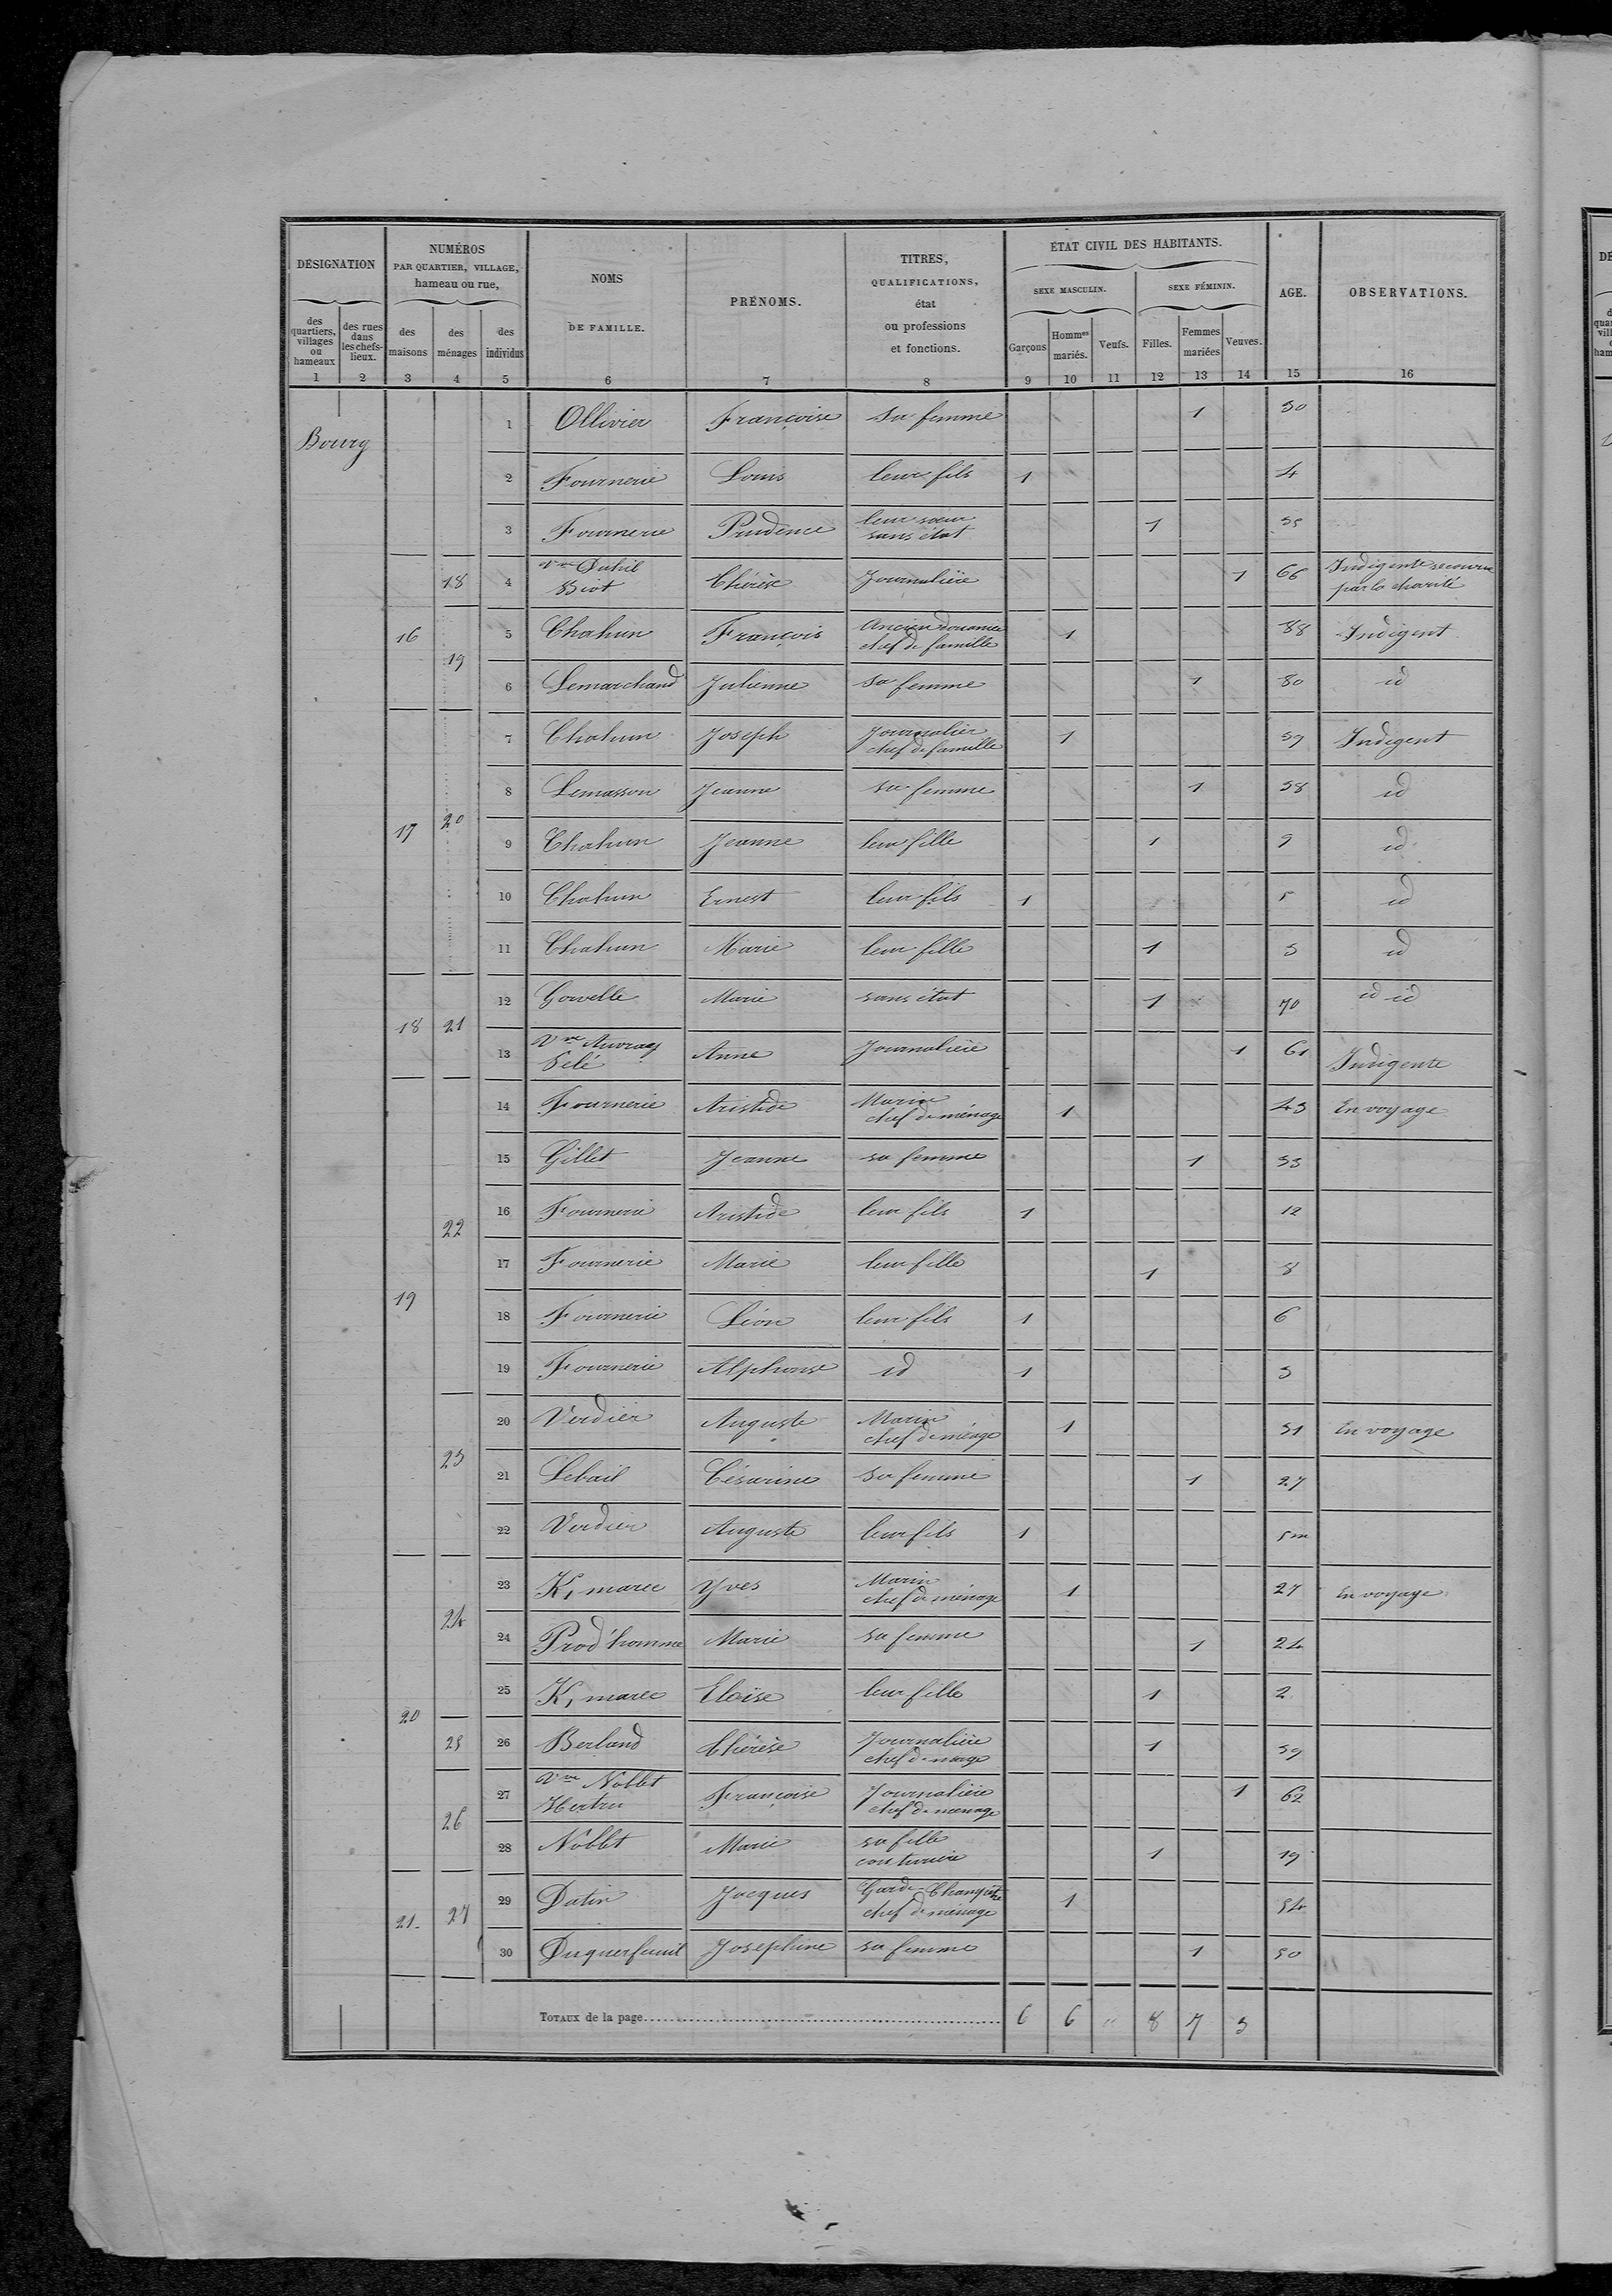 DÉSIGNATION
NUMÉROS
PAR QUARTIER, VILLAGE,
hameau ou rue,
NOMS
DE FAMILLE.
PRÉNOMS.
TITRES,
QUALIFICATIONS,
état
ou professions
et fonctions.
ÉTAT CIVIL DES HABITANTS.
SEXE MASCULIN.
SEXE FÉMININ.
AGE.
OBSERVATIONS.
des quartiers, villages ou hameaux
des rues dans les chefs-lieux.
des maisons
des ménages
des individus
Garçons
Hommes mariés.
Veufs.
Filles.
Femmes mariées
Veuves.
1 2 3 4 5 6 7 8 9 10 11 12 13 14 15 16
Bourg
1 Ollivier Françoise sa femme 1 30
2 Fournerie Louis leur fils 1 4
3 Fournerie Prudence leur sœur sans état 1 35
18 4 Vve Duhil Biot Thérèse Journalière 1 66 Indigente secourue par la charité
16 19 5 Chahun François Ancien douanier chef de famille 1 88 Indigent
6 Lemarchand Julienne sa femme 1 80 id
17 20 7 Chahun Joseph Journalier chef de famille 1 39 Indigent
8 Lemasson Jeanne sa femme 1 38 id
9 Chahun Jeanne leur fille 1 9 id
10 Chahun Ernest leur fils 1 5 id
11 Chahun Marie leur fille 1 3 id
18 21 12 Gorvelle Marie sans état 1 70 id id
13 Vve Auvray Pelé Anne Journalière 1 61 Indigente
19 22 14 Fournerie Aristide Marin chef de ménage 1 43 En voyage
15 Gillet Jeanne sa femme 1 33
16 Fournerie Aristide leur fils 1 12
17 Fournerie Marie leur fille 1 8
18 Fournerie Léon leur fils 1 6
19 Fournerie Alphonse id 1 3
23 20 Verdier Auguste Marin chef de ménage 1 31 En voyage
21 Lebail Césarine sa femme 1 27
22 Verdier Auguste leur fils 1 5m
20 24 23 K, marec Yves Marin chef de ménage 1 27 En voyage
24 Prod'homme Marie sa femme 1 24
25 K, marec Eloïse leur fille 1 2
25 26 Berland Thérèse Journalière chef de ménage 1 39
26 27 Vve Noblet Hertru Françoise Journalière chef de ménage 1 62
28 Noblet Marie sa fille couturière 1 19
21 27 29 Datin Jacques Garde-Champêtre chef de ménage 1 54
30 Duquerfeuil Joséphine sa femme 1 50
TOTAUX de la page 6 6 " 8 7 3